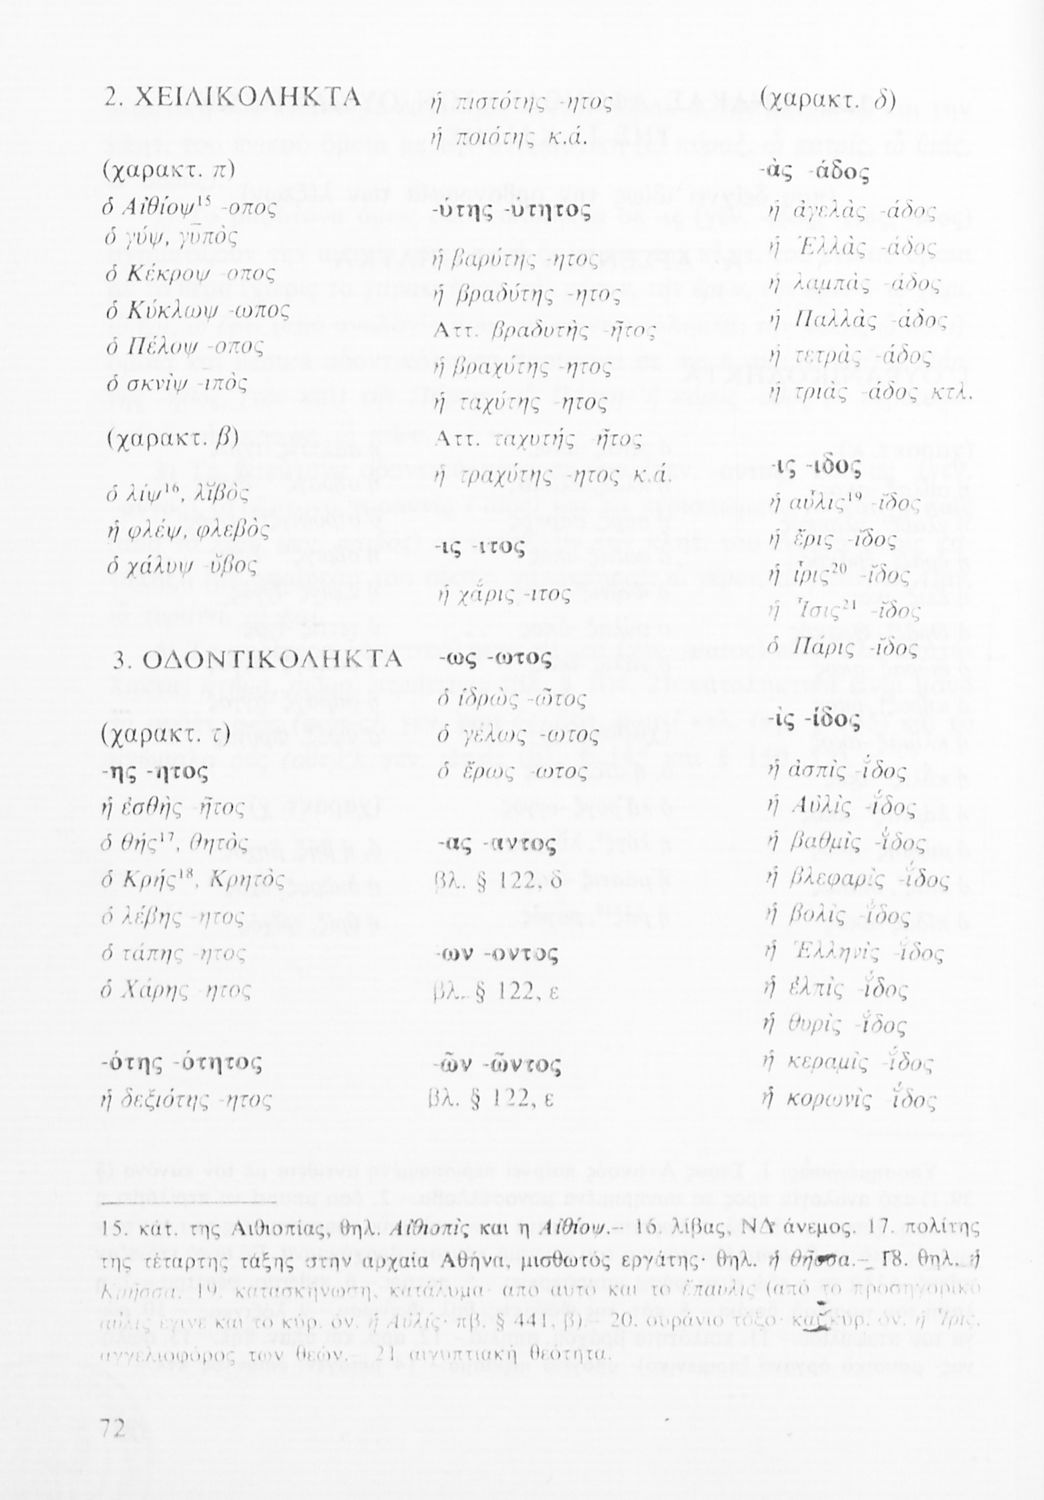 2. ΧΕΙΛΙΚΟΛΗΚΤΑ
(χαρακτ. π)
ὁ Αἰθίοψ¹⁵ -οπος
ὁ γύψ, γῡπὸς
ὁ Κέκροψ -οπος
ὁ Κύκλωψ -ωπος
ὁ Πέλοψ -οπος
ὁ σκνὶψ -ιπὸς
(χαρακτ. β)
ὁ λίψ¹⁶, λῐβὸς
ἡ φλέψ, φλεβὸς
ὁ χάλυψ -ῠβος
3. ΟΔΟΝΤΙΚΟΛΗΚΤΑ
(χαρακτ. τ)
-ης -ητος
ἡ ἐσθὴς -ῆτος
ὁ θής¹⁷, θητὸς
ὁ Κρής¹⁸, Κρητὸς
ὁ λέβης -ητος
ὁ τάπης -ητος
ὁ Χάρης -ητος
-ότης -ότητος
ἡ δεξιότης -ητος
ἡ πιστότης -ητος
ἡ ποιότης κ.ά.
-ύτης -ύτητος
ἡ βαρύτης -ητος
ἡ βραδύτης -ητος
Αττ. βραδυτὴς -ῆτος
ἡ βραχύτης -ητος
ἡ ταχύτης -ητος
Αττ. ταχυτής -ῆτος
ἡ τραχύτης -ητος κ.ά.
-ις -ιτος
ἡ χάρις -ιτος
-ως -ωτος
ὁ ἱδρὼς -ῶτος
ὁ γέλως -ωτος
ὁ ἔρως -ωτος
-ας -αντος
βλ. § 122, δ
-ων -οντος
βλ. § 122, ε
-ῶν -ῶντος
βλ. § 122, ε
(χαρακτ. δ)
-ὰς -άδος
ἡ ἀγελὰς -άδος
ἡ Ἑλλὰς -άδος
ἡ λαμπὰς -άδος
ἡ Παλλὰς -άδος
ἡ τετρὰς -άδος
ἡ τριὰς -άδος κτλ.
-ις -ιδος
ἡ αὖλις¹⁹ -ῐδος
ἡ ἔρις -ῐδος
ἡ ἶρις²⁰ -ῐδος
ἡ Ἶσις²¹ -ῐδος
ὁ Πάρις -ῐδος
-ὶς -ίδος
ἡ ἀσπὶς -ῐ́δος
ἡ Αὐλὶς -ῐ́δος
ἡ βαθμὶς -ῐ́δος
ἡ βλεφαρὶς -ῐ́δος
ἡ βολὶς -ῐ́δος
ἡ Ἑλληνὶς -ῐ́δος
ἡ ἐλπὶς -ῐ́δος
ἡ θυρὶς -ῐ́δος
ἡ κεραμὶς -ῐ́δος
ἡ κορωνὶς -ῐ́δος
15. κάτ. της Αιθιοπίας, θηλ. Αἰθιοπὶς και η Αἰθίοψ.- 16. λίβας, ΝΔ άνεμος. 17. πολίτης
της τέταρτης τάξης στην αρχαία Αθήνα, μισθωτός εργάτης· θηλ. ἡ θῆσσα.- 18. θηλ. ἡ
Κρῆσσα. 19. κατασκήνωση, κατάλυμα· από αυτό και το ἔπαυλις (από το προσηγορικό
αὖλις έγινε και το κύρ. όν. ἡ Αὐλίς· πβ. § 441, β).- 20. ουράνιο τόξο· και κύρ. όν. ἡ Ἶρις,
αγγελιοφόρος των θεών.- 21 αιγυπτιακή θεότητα.
72